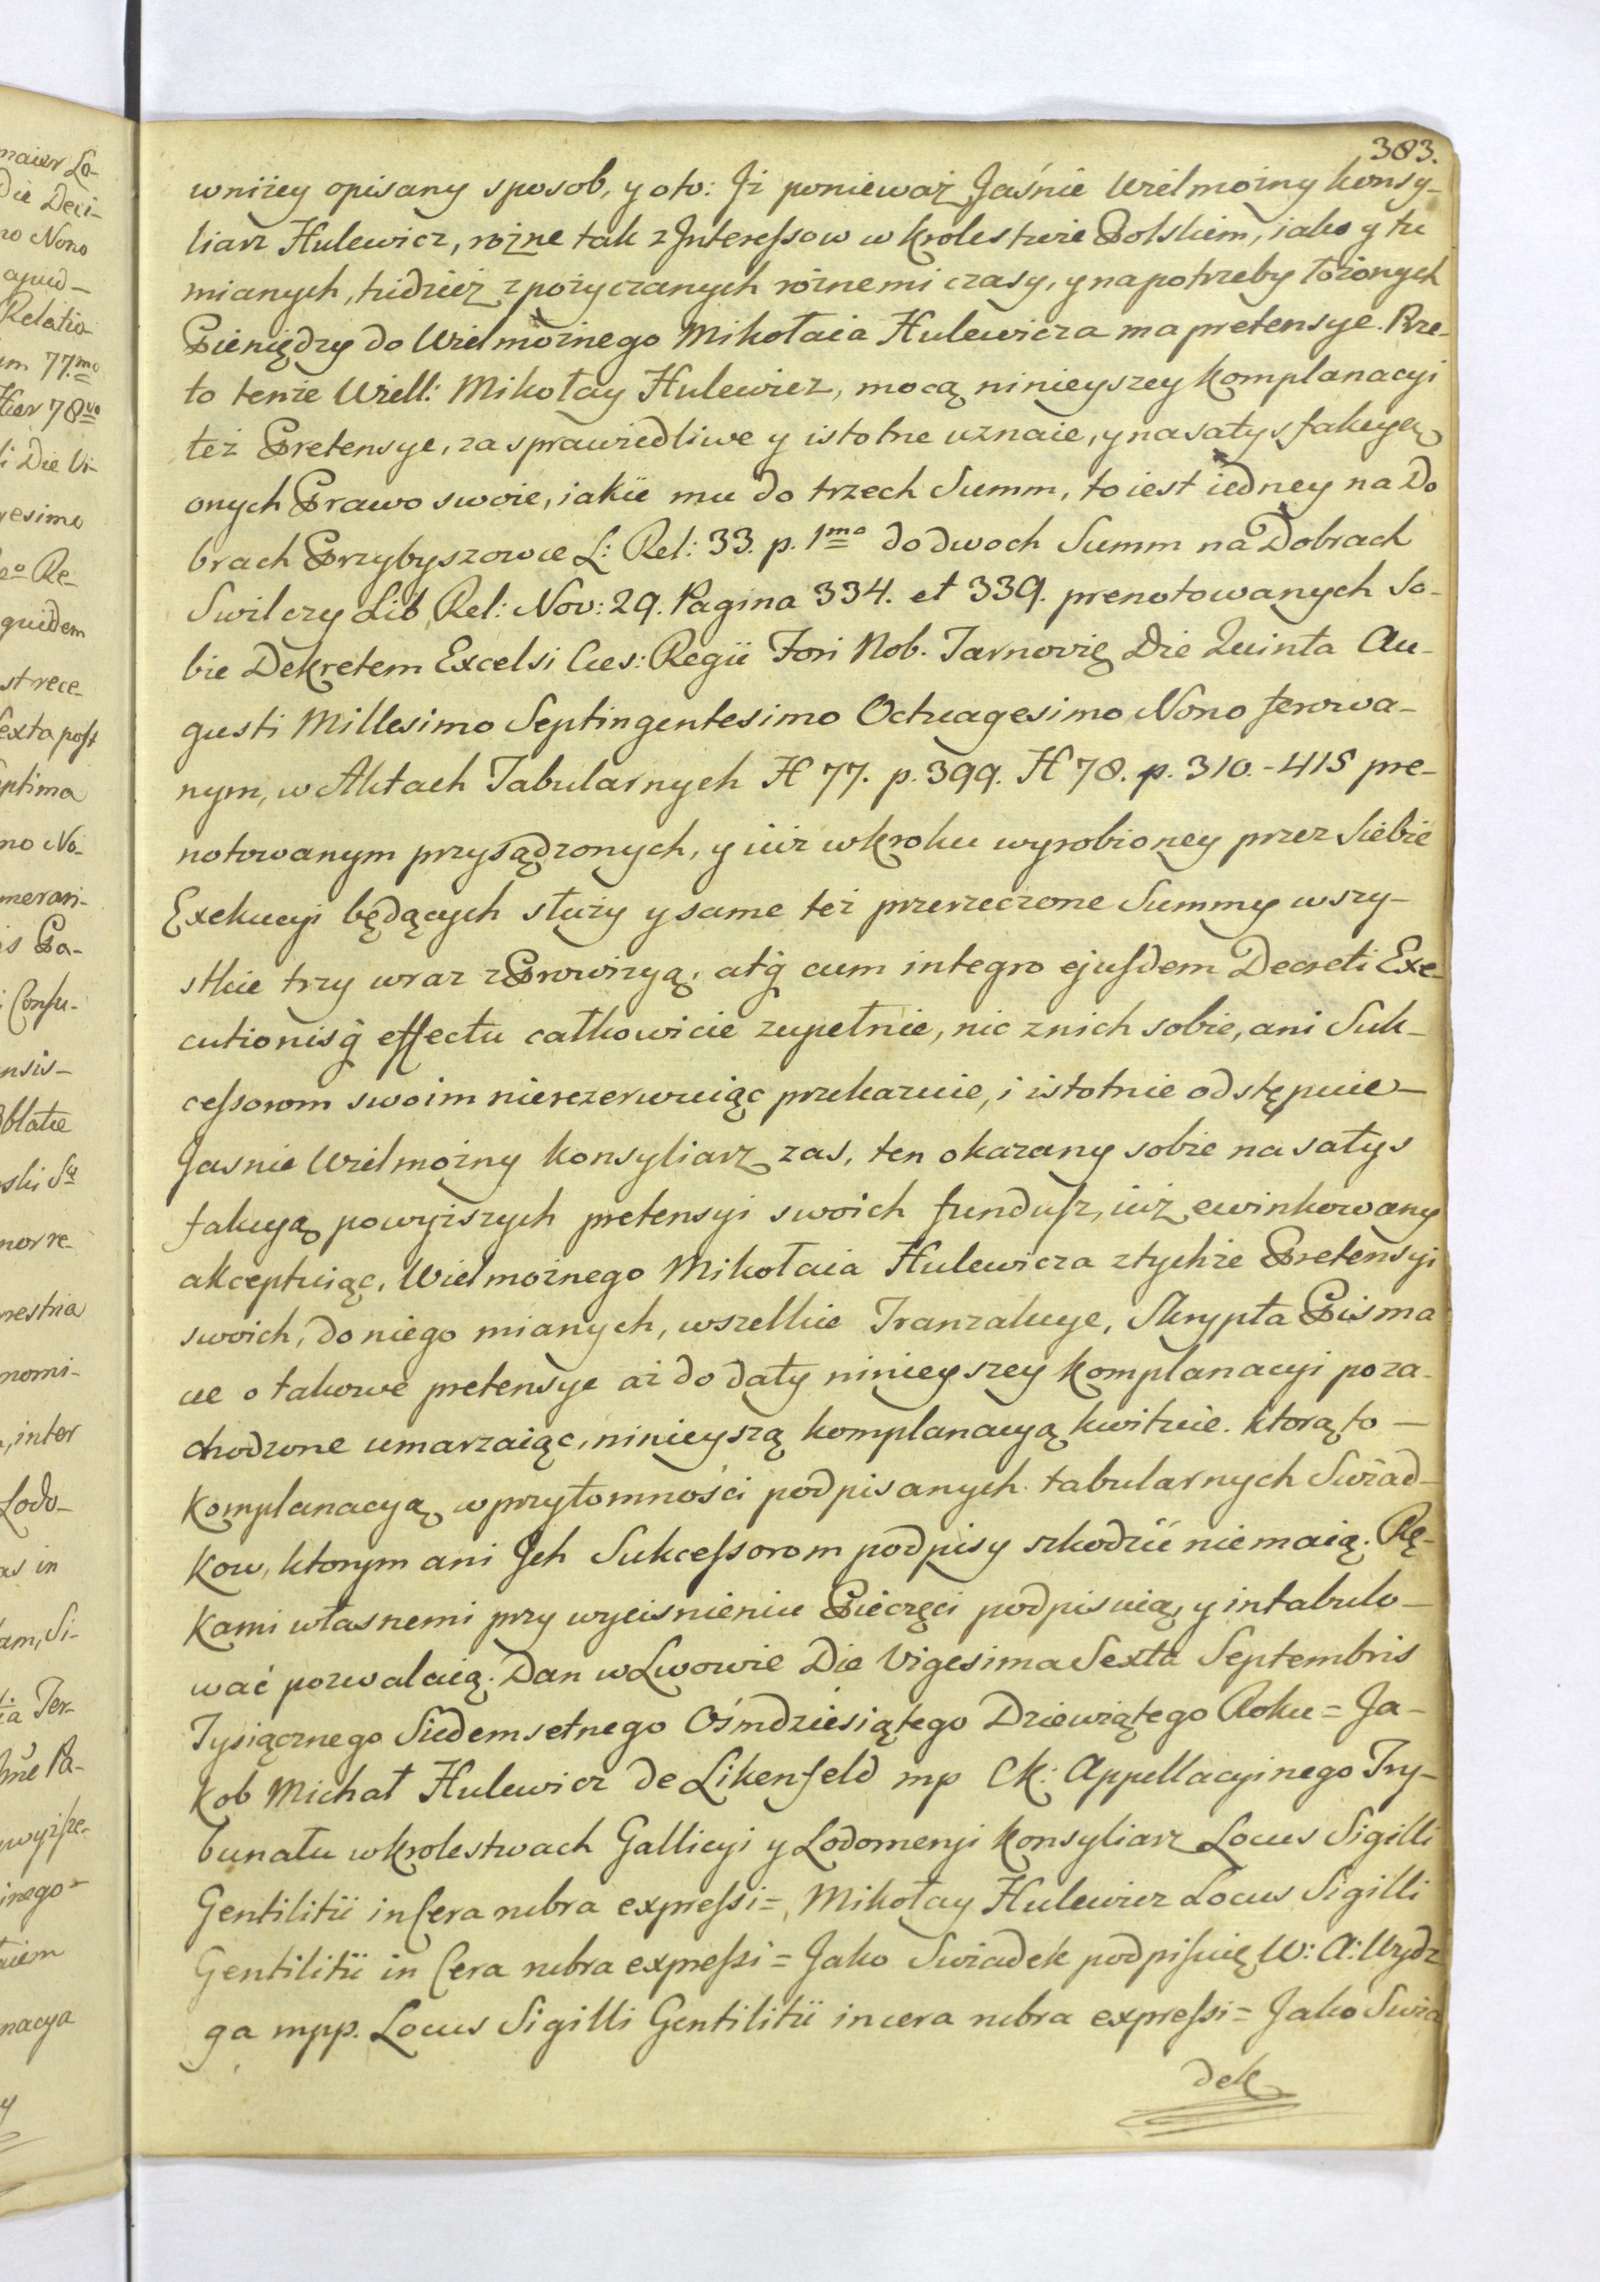 383.
wniżey opisany sposob, y oto: Iż ponieważ Jaśnie Wielmożny Konsy-
liarz Hulewicz, rożne tak z Interessow w Krolestwie Polskiem, iako y tu
mianych, tudzież zpożyczanych rożnemi czasy, y na potrzeby łożonych
Pieniędzy do Wielmożnego Mikołaia Hulewicza ma pretensye. Prze-
to tenże Wiell: Mikołay Hulewicz, mocą ninieyszey Komplanacyi
też Pretensye, za sprawiedliwe y istotne uznaie, y na satysfakcyą
onych Prawo swoie, iakie mu do trzech Summ, to iest iedney na Do
brach Przybyszowce L: Rel: 33. p. 1mo do dwoch Summ na Dobrach
Swilczy Lib. Rel: Nov: 29. Pagina 334. et 339. prenotowanych So-
bie Dekretem Excelsi Cæs: Regii Fori Nob. Tarnovię Die Quinta Au-
gusti Millesimo Septingentesimo Octuagesimo Nono ferowa-
nym, w Aktach Tabularnych H 77. p. 399. H 78. p. 310.-415 pre-
notowanym przysądzonych, y iuż wkroku wyrobioney przez Siebie
Exekucyi będących służy y same też przerzeczone Summy wszy-
stkie trzy wraz z Prowizyą, atq cum integro ejusdem Decreti Exe-
cutionisq effectu całkowicie zupełnie, nic znich sobie, ani Suk-
cessorom swoim nierezerwuiąc przekazuie, i istotnie odstępuie—
Jasnie Wielmożny Konsyliarz zas, ten okazany sobie na satys
fakcyą powyższych pretensyi swoich fundusz, iuż ewinkowany
akceptuiąc, Wielmożnego Mikołaia Hulewicza ztychże Pretensyi
swoich, do niego mianych, wszelkie Tranzakcye, Skrypta Pisma
ue o takowe pretensye aż do daty ninieyszey Komplanacyi poza-
chodzone umarzaiąc, ninieyszą komplanacyą kwituie. ktorą to—
Komplanacyą wprzytomności podpisanych tabularnych Swiad-
kow, ktorym ani Ich Sukcessorom podpisy szkodzić niemaią. Rę-
kami własnemi przy wycisnieniu Pieczęci podpisuią, y intabulo-
wać pozwalaią. Dan w Lwowie Die Vigesima Sexta Septembris
Tysiącznego Siedemsetnego Ośmdziesiątego Dziewiątego Roku = Ja-
kob Michał Hulewicz de Likenfeld mp CK: Appellacyinego Try-
bunału wkrolestwach Gallicyi y Lodomeryi Konsyliarz Locus Sigilli
Gentilitii in Cera rubra expressi = Mikołay Hulewicz Locus Sigilli
Gentilitii in Cera rubra expressi = Jako Swiadek podpisuię W: A: Wydz
ga mpp. Locus Sigilli Gentilitii in cera rubra expressi = Jako Swia
dek